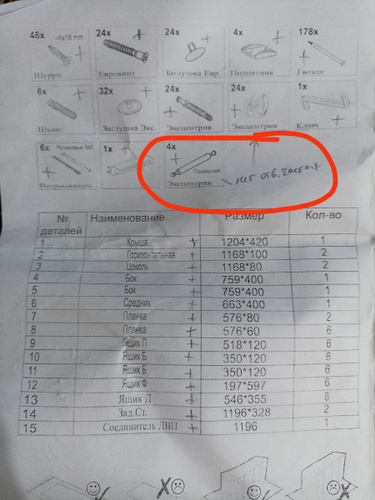 48x ø4x16 mm 24x 24x 4x 178x
Шуруп Евровинт Заглушка Евр. Подпятник Гвозди
6x 32x 24x 24x 1x
Шкант Заглушка Экс. Эксцентрик Эксцентрик Ключ
6x 1x 4x
Направляющая Эксцентрик нет отв. части
№ деталей Наименование Размер Кол-во
1 Крыша 1204*420 1
2 Горизонтальная 1168*100 2
3 Цоколь 1168*80 2
4 Бок 759*400 1
5 Бок 759*400 1
6 Средник 663*400 1
7 Планка 576*80 2
8 Планка 576*60 6
9 Ящик П 518*120 6
10 Ящик Б 350*120 6
11 Ящик Б 350*120 6
12 Ящик Ф 197*597 6
13 Ящик Д 546*355 6
14 Зад.Ст. 1196*328 2
15 Соединитель ДВП 1196 1